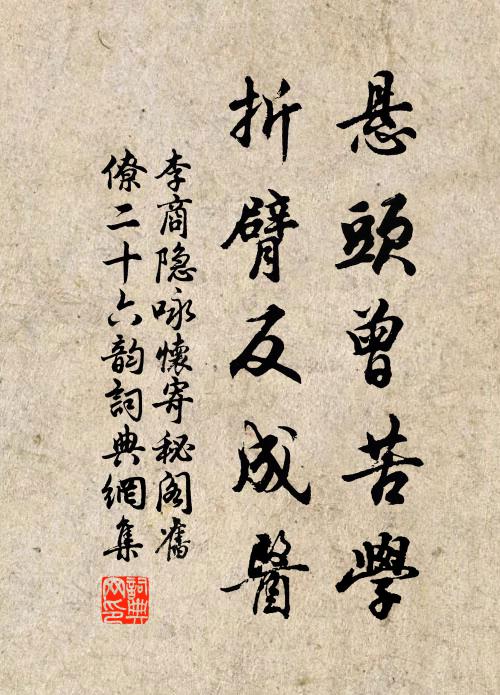 悬頭曾苦學
折臂反成醫
李商隐咏懷寄秘阁舊
僚二十六韵詞典網集
詞典網印